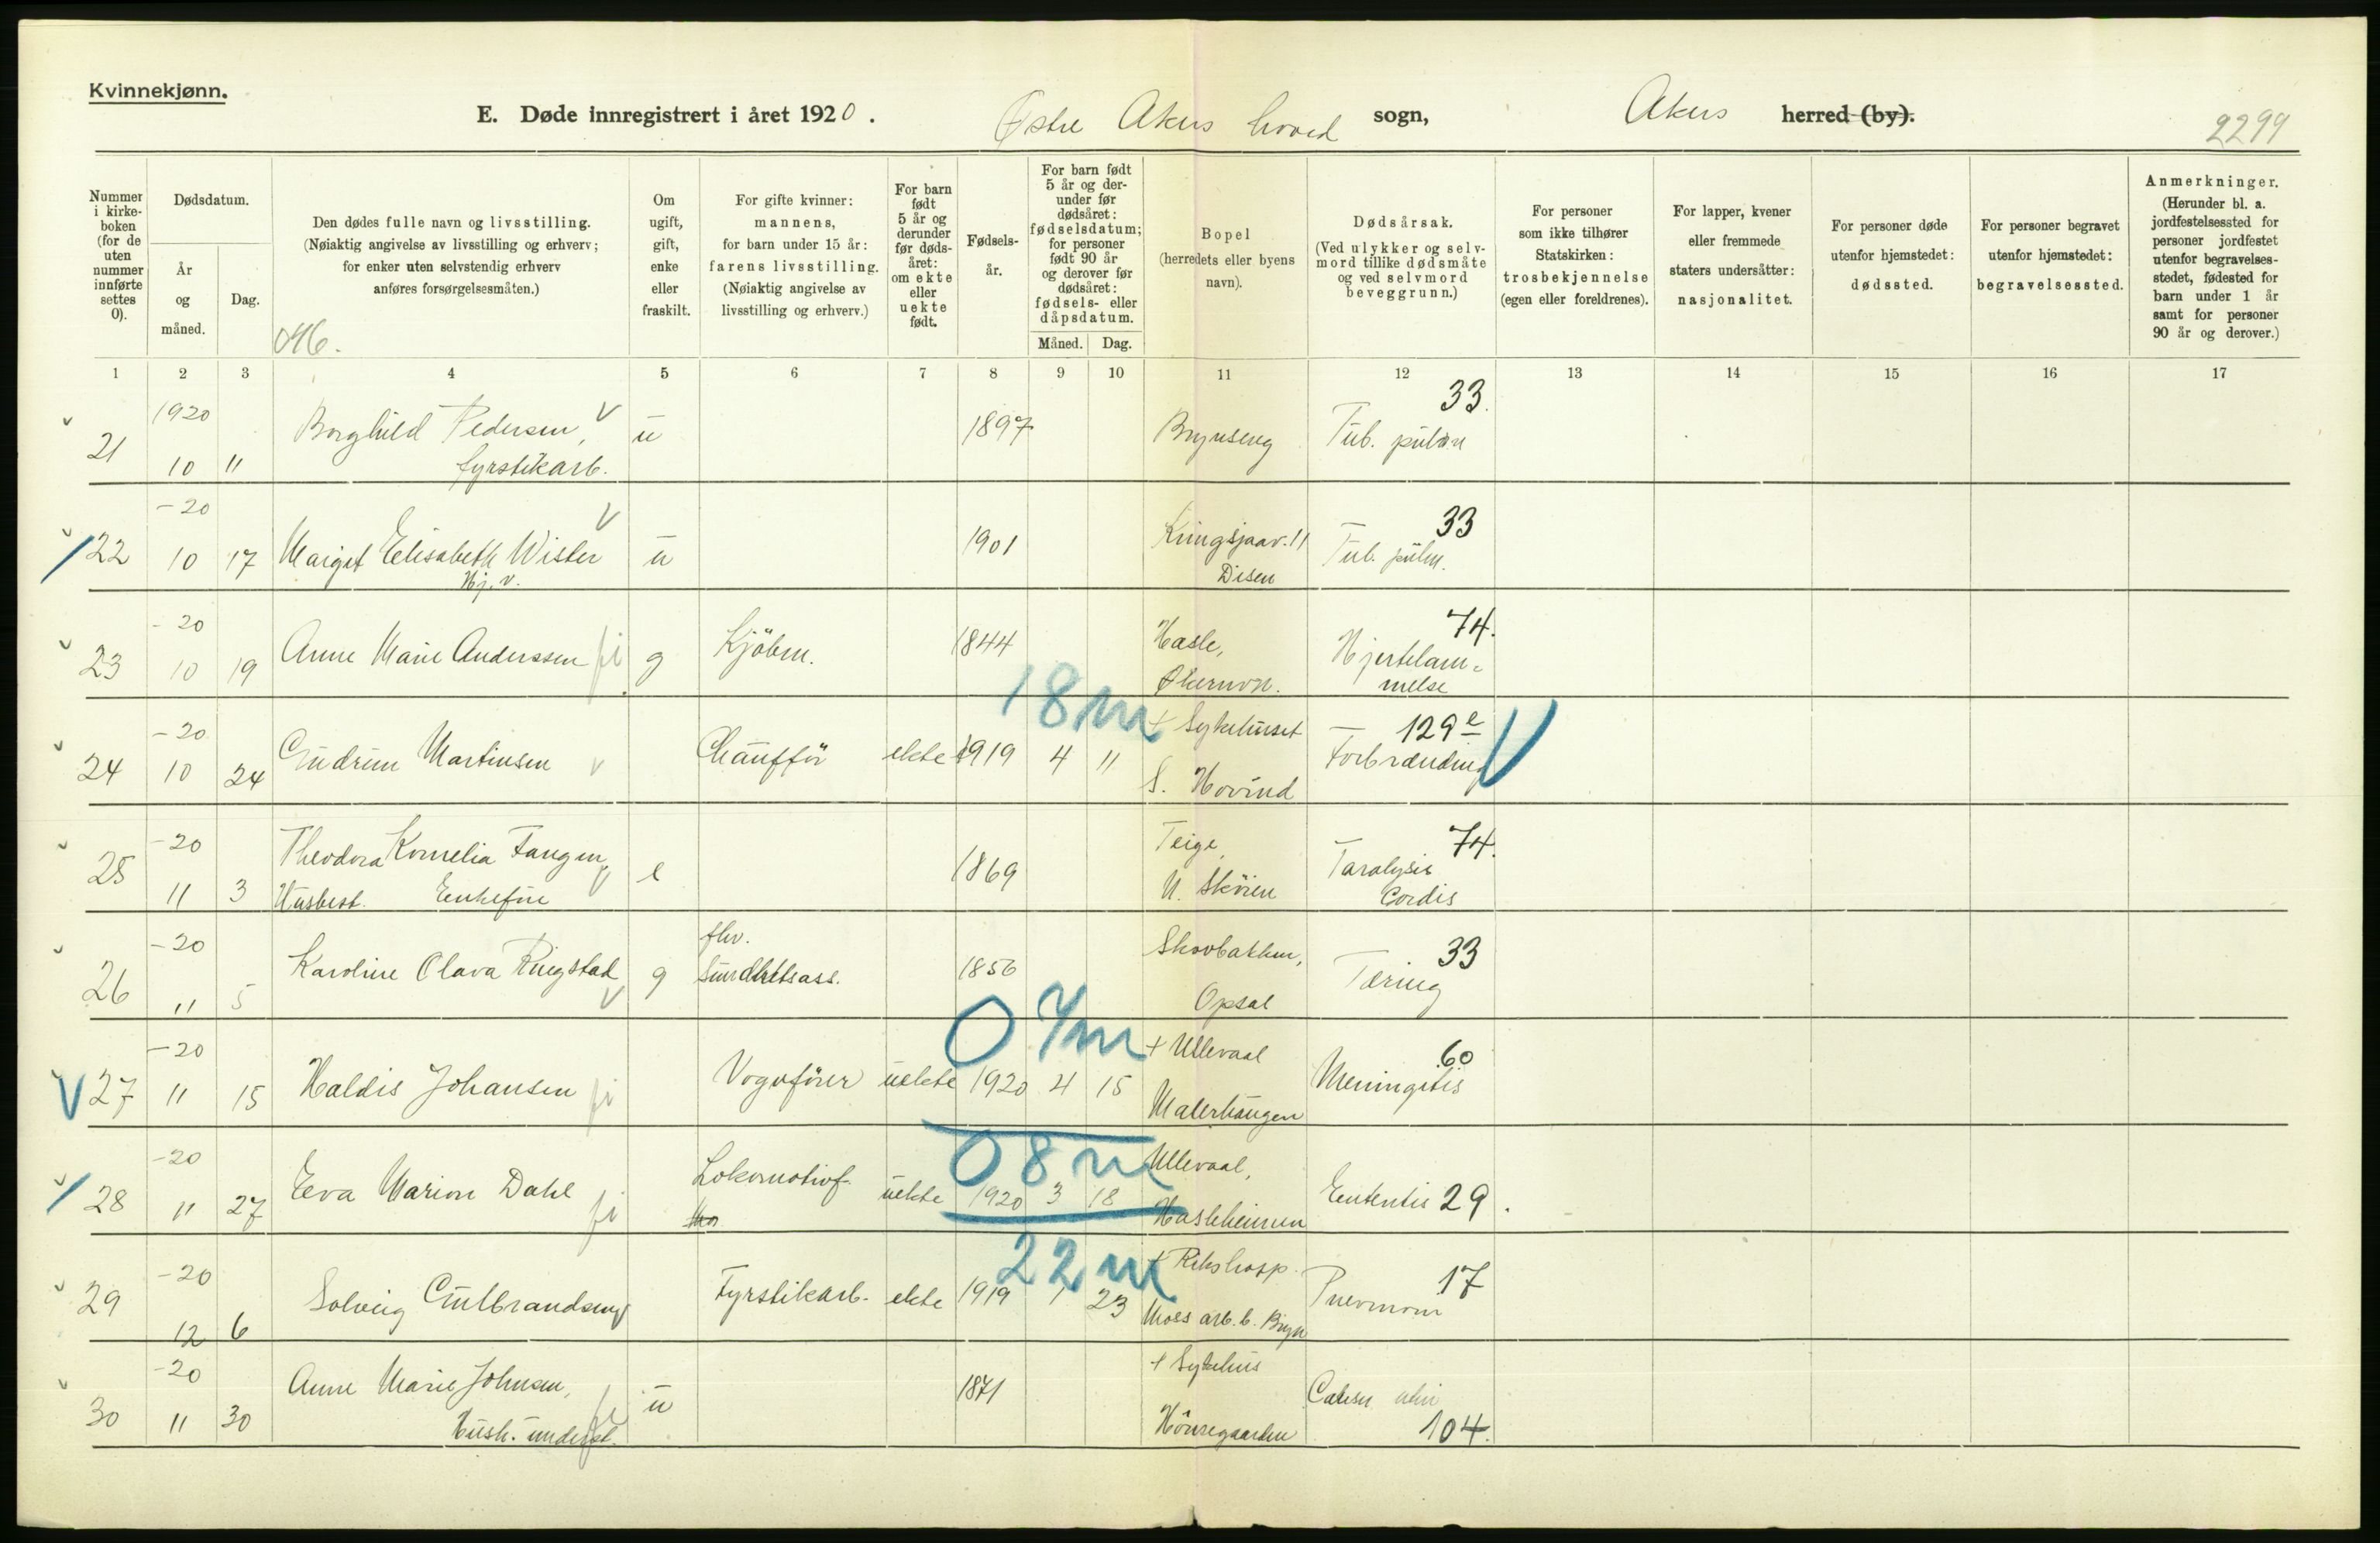 Kvinnekjønn.
E. Døde innregistrert i året 1920. Østre Akers hoved sogn, Akers herred (by). 2299
Nummer i kirke-boken (for de uten nummer innførte settes 0).
Dødsdatum.
År og måned.
Dag.
Den dødes fulle navn og livsstilling.
(Nøiaktig angivelse av livsstilling og erhverv;
for enker uten selvstendig erhverv
anføres forsørgelsesmåten.)
Om ugift, gift, enke eller fraskilt.
For gifte kvinner:
mannens,
for barn under 15 år:
farens livsstilling.
(Nøiaktig angivelse av
livsstilling og erhverv.)
For barn født 5 år og derunder før døds-året: om ekte eller uekte født.
Fødsels-år.
For barn født 5 år og der-under før dødsåret: fødselsdatum; for personer født 90 år og derover før dødsåret: fødsels- eller dåpsdatum.
Måned. Dag.
Bopel
(herredets eller byens
navn).
Dødsårsak.
(Ved ulykker og selv-
mord tillike dødsmåte
og ved selvmord
beveggrunn.)
For personer
som ikke tilhører
Statskirken:
trosbekjennelse
(egen eller foreldrenes).
For lapper, kvener
eller fremmede
staters undersåtter:
nasjonalitet.
For personer døde
utenfor hjemstedet:
dødssted.
For personer begravet
utenfor hjemstedet:
begravelsessted.
Anmerkninger.
(Herunder bl. a.
jordfestelsessted for
personer jordfestet
utenfor begravelses-
stedet, fødested for
barn under 1 år
samt for personer
90 år og derover.)
1 2 3 4 5 6 7 8 9 10 11 12 13 14 15 16 17
1920 33.
21 10 11 Borghild Pedersen, ü 1897 Brynseng Tub. pulm
fyrstikarb.
-20 33
22 10 17 Margit Elisabeth Wister ü 1901 Kringsjaav. 11 Tub. pulm.
Hj. v. Disen
-20 74.
23 10 19 Anne Marie Anderssen g Kjöbm. 1844 Hasle, Hjertelam-
Økernvn. melse
18 m
-20 + Sykehuset 129 e
24 10 24 Gudrun Martinsen Chaufför ekte 1919 4 11 Forbrænding
S. Hovind
-20 Teige, 74.
25 11 3 Theodora Kornelia Fangen e 1869 Paralysis
Husbest. Enkefrue N. Skøien Cordis
-20 fhv. Skovbakken, 33
26 11 5 Karoline Olava Ringstad g Sundhetsass. 1856 Tæring
Opsal
0 7 m
-20 + Ullevaal 60
27 11 15 Haldis Johansen Vognfører uekte 1920 4 15 Meningitis
Malerhaugen
0 8 m
-20 Ullevaal,
28 11 27 Eva Marion Dahl Lokomotivf. uekte 1920 3 18 Enteritis 29.
Hasleheimen
22 m
-20 + Rikshosp. 17
29 12 6 Solveig Gulbrandsen Fyrstikarb. ekte 1919 1 23 Pnevmoni
Moss arb. b. Bryn
-20 + Sykehus
30 11 30 Anne Marie Johnsen, ü 1871 Cancer
Hush. underst. 104.